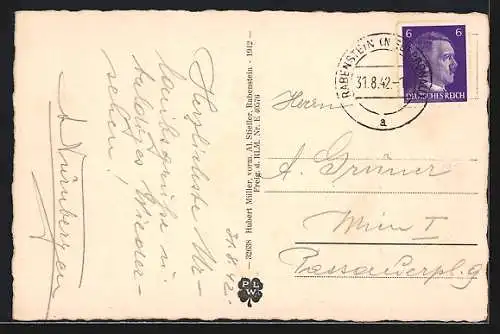 Herzlichste Ur-
laubsgrüße u.
baldiges Wieder-
sehen!
Nürnberger
31.8.42.
32638 Hubert Müller, vorm. Al. Stiefler, Rabenstein - 1942 -
Freig. d. RLM. Nr. E 40376
P L W
RABENSTEIN
31.8.42.-
a
6 6
DEUTSCHES REICH
Herrn
A. Grüner
Wien I
Passauerpl. 9